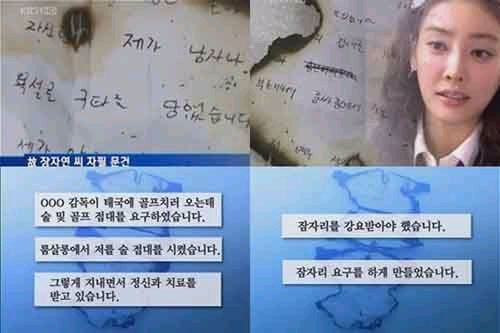 KBS
제가 남자나
욕설로 구타를 당했습니다
제가
故 장자연 씨 자필 문건
OOO 감독이 태국에 골프치러 오는데
술 및 골프 접대를 요구하였습니다.
룸살롱에서 저를 술 접대를 시켰습니다.
그렇게 지내면서 정신과 치료를
받고 있습니다.
잠자리를 강요받아야 했습니다.
잠자리 요구를 하게 만들었습니다.